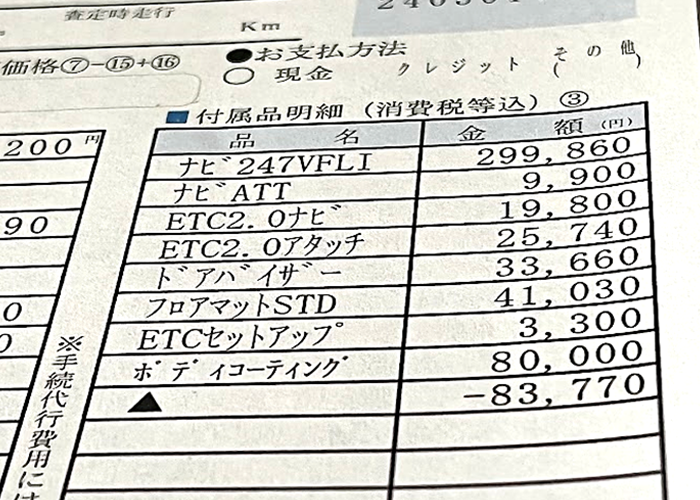 査定時走行
Km
価格⑦−⑮+⑯
●お支払方法
○ 現金 クレジット その他( )
■付属品明細(消費税等込)③
200円
品名 金額(円)
ナビ247VFLI 299,860
ナビATT 9,900
90
ETC2.0ナビ 19,800
ETC2.0アタッチ 25,740
ドアバイザー 33,660
0
フロアマットSTD 41,030
0
ETCセットアップ 3,300
ボディコーティング 80,000
▲ −83,770
※手続代行費用には